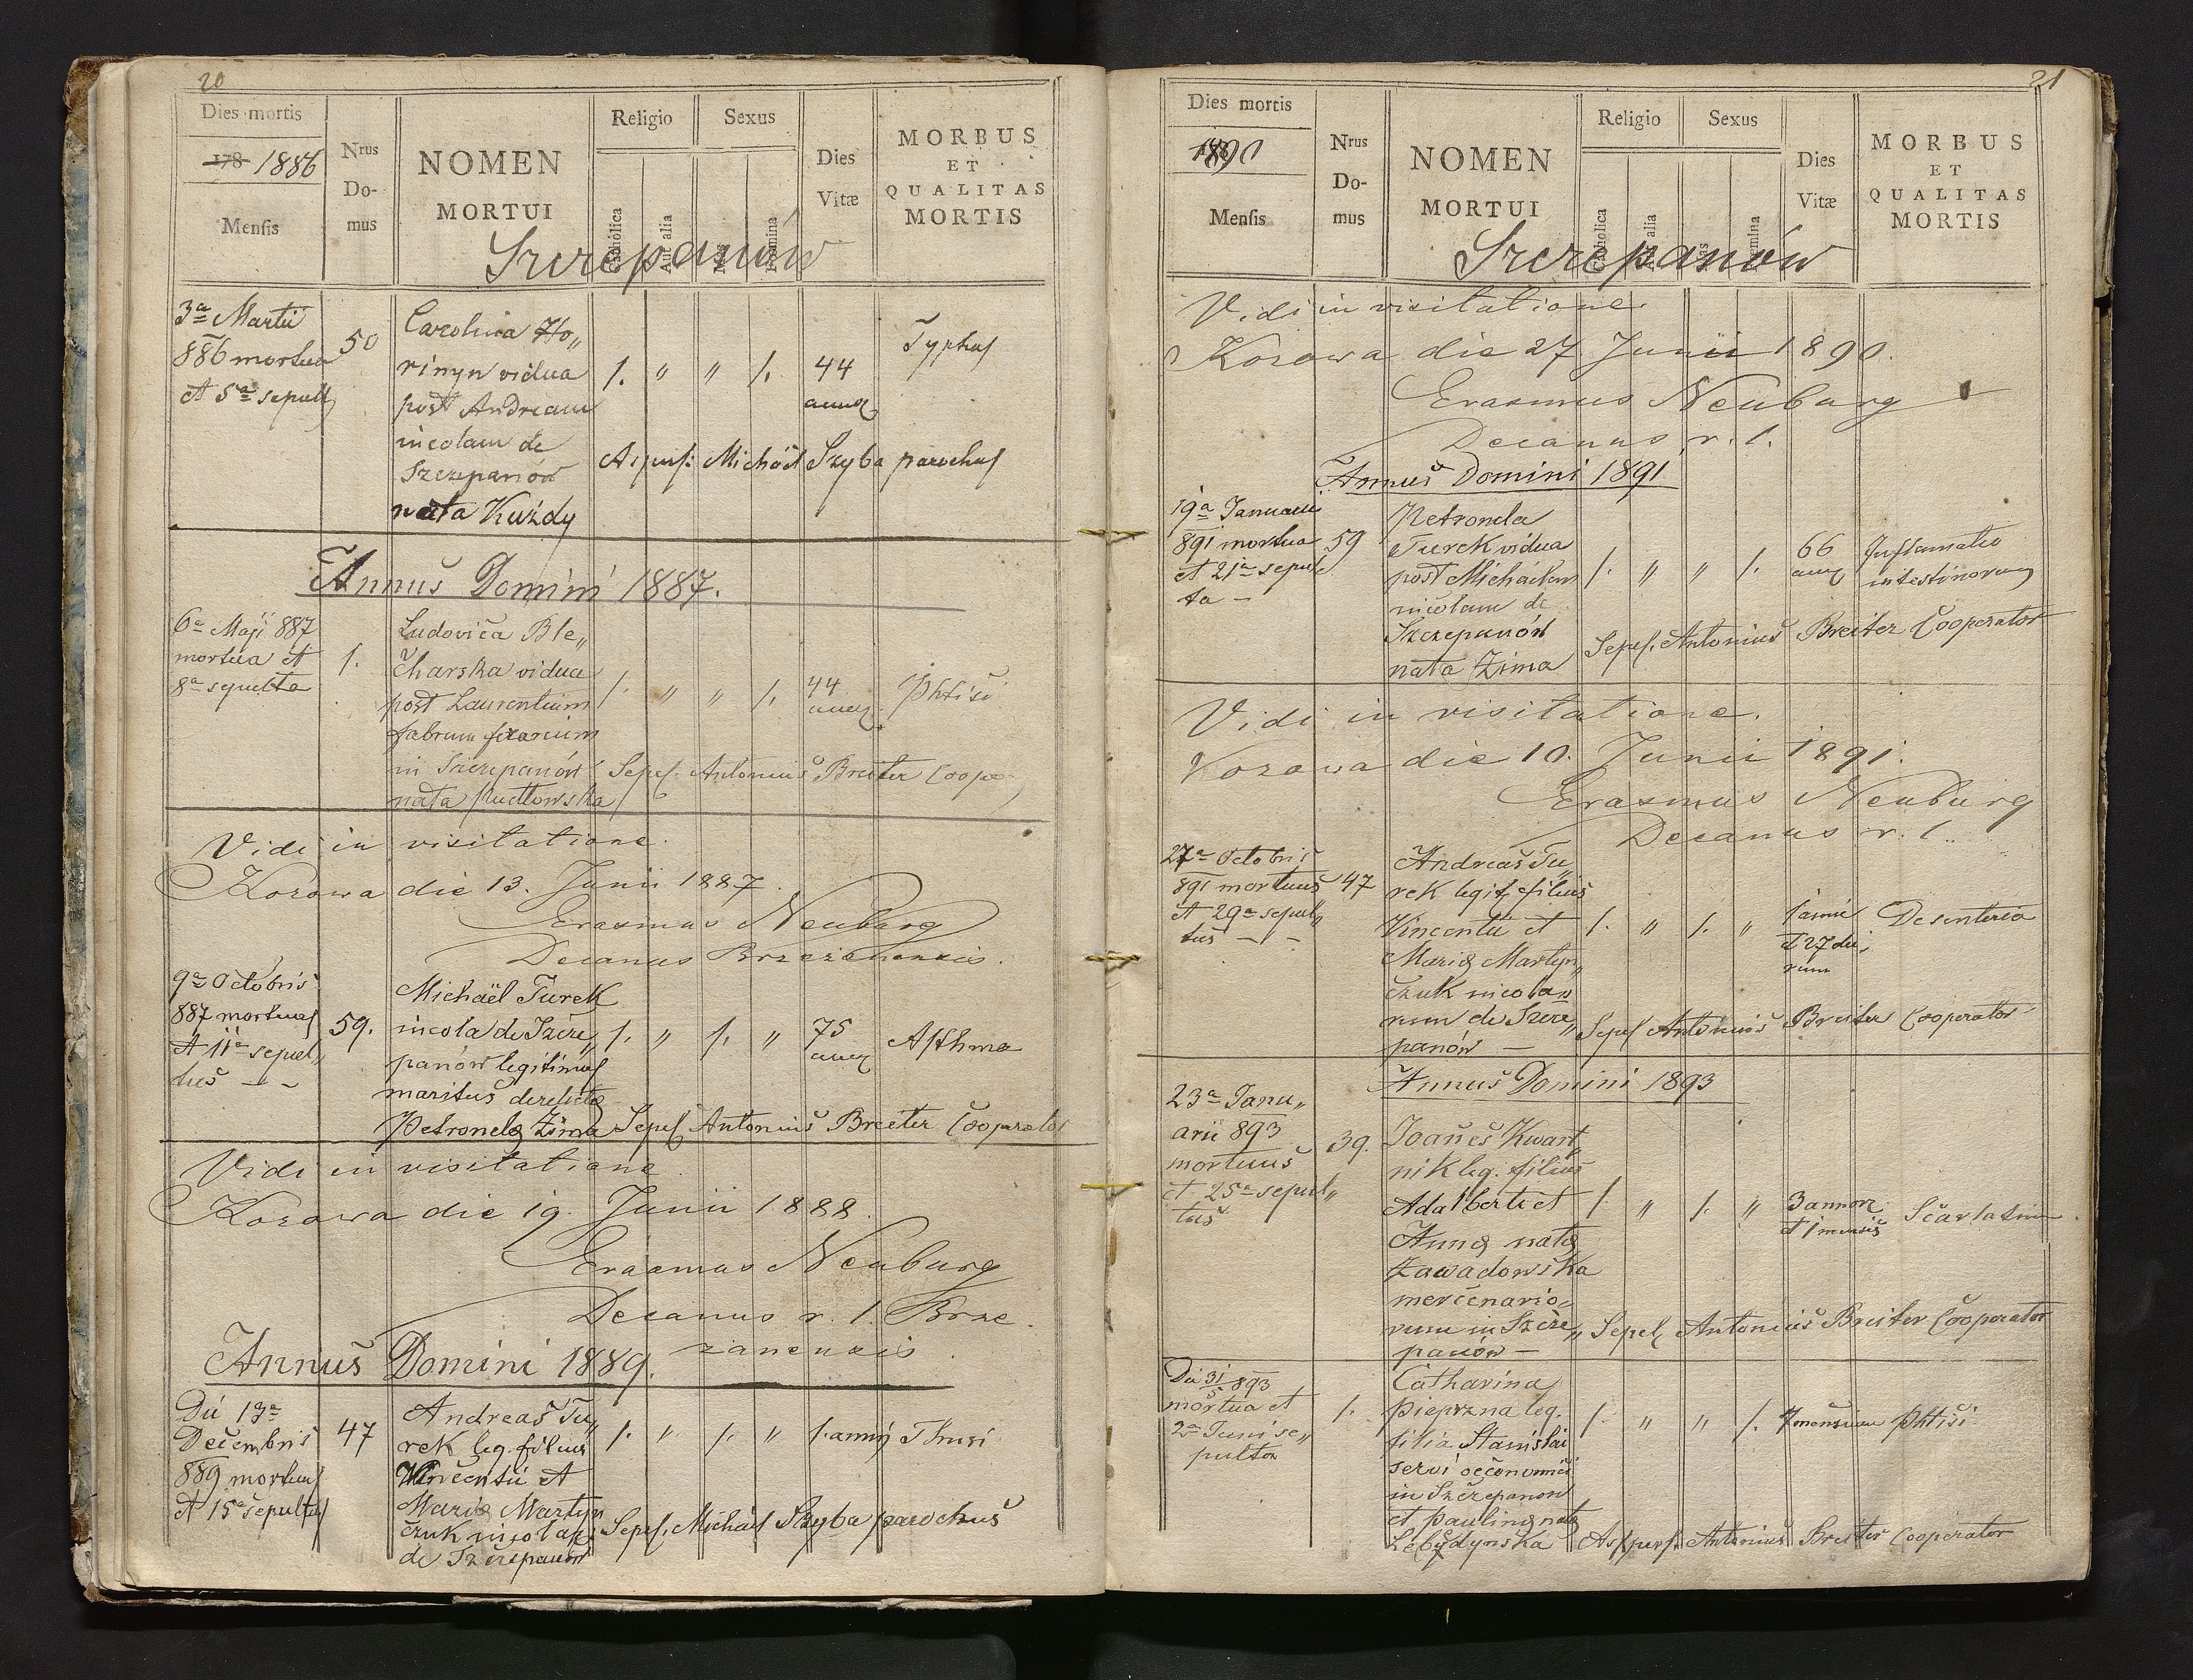 20
Dies mortis
178 1886
Mensis
Nrus
Do-
mus
NOMEN
MORTUI
Religio
Catholica
Aut alia
Sexus
Femina
Dies
Vitæ
MORBUS
ET
QUALITAS
MORTIS
Szczepanów
3a Martii
886 mortua
et 5a sepult
50
Carolina Ho„
rinyn vidua
post Andream
incolam de
Szczepanów
nata Kuzdy
1. „ „ 1.
44
annor
Typhus
Michael Szyba parochus
Annus Domini 1887.
6a Maji 887
mortua et
8a sepulta
1.
Ludovica Ble„
charska vidua
post Laurentium
fabrum
in Szczepanów
nata
1. „ „ 1.
44
annor
Phtisi
Sepel. Antonius Breiter Coope
Vidi in visitatione.
Kozowa die 13. Junii 1887.
Erasmus Neuburg
Decanus Brzezanensis.
9a Octobris
887 mortuus
et 11a sepul„
tus — –
59.
Michaël Turek
incola de Szcze„
panów legitimus
maritus derelictæ
Petronelæ Zima
1. „ 1. „
75
annor
Asthma
Sepel Antonius Breiter Cooperator
Vidi in visitatione
Kozowa die 19. Junii 1888.
Erasmus Neuburg
Decanus r. l. Brze-
zanensis
Annus Domini 1889.
Die 13a
Decembris
889 mortuus
et 15a sepultus
47
Andreas Tu„
rek leg. filius
Vincentii et
Mariæ Martyn
czuk incolar
de Szczepanów
1. „ 1. „
1. anni
Tussi
Sepel. Michael Szyba parochus
21
Dies mortis
1890
Mensis
Nrus
Do-
mus
NOMEN
MORTUI
Religio
Catholica
Aut alia
Sexus
Femina
Dies
Vitæ
MORBUS
ET
QUALITAS
MORTIS
Szczepanów
Vidi in visitatione.
Kozowa die 27 Junii 1890.
Erasmus Neuburg
Decanus r. l.
Annus Domini 1891
19a Januarii
891 mortua
et 21a sepul
ta –
59
Petronela
Turek vidua
post Michaelem
incolam de
Szczepanów
nata Zima
1. „ „ 1.
66
annor
Inflamatio
intestinorum
Sepel. Antonius Breiter Cooperator
Vidi in visitatione.
Kozowa die 10. Junii 1891.
Erasmus Neuburg
Decanus r. l.
27a Octobris
891 mortuus
et 29a sepul„
tus — –
47
Andreas Tu„
rek legit. filius
Vincentii et
Mariæ Martyn„
czuk incola„
rum de Szcze„
panów —
1. „ 1. „
1 anni
et 27 die„
rum
Desenteria
Sepel Antonius Breiter Cooperator
Annus Domini 1893
23a Janu„
arii 893
mortuus
et 25a sepul„
tus
39.
Joannes Kwart„
nik leg. filius
Adalberti et
Annæ natæ
Zawadowska
mercenario„
rum in Szcze„
panów —
1. „ 1. „
3 annor
et 1 mensis
Scarlatina
Sepel Antonius Breiter Cooperator
Die 31/5 893
mortua et
2a Juni se„
pulta
1.
Catharina
Pieprzna leg.
filia Stanislai
servi oeconomici
in Szczepanow
et Paulinæ natæ
Lebydynska
1. „ „ 1.
7 mensium
Phtisi
Antonius Breiter Cooperator